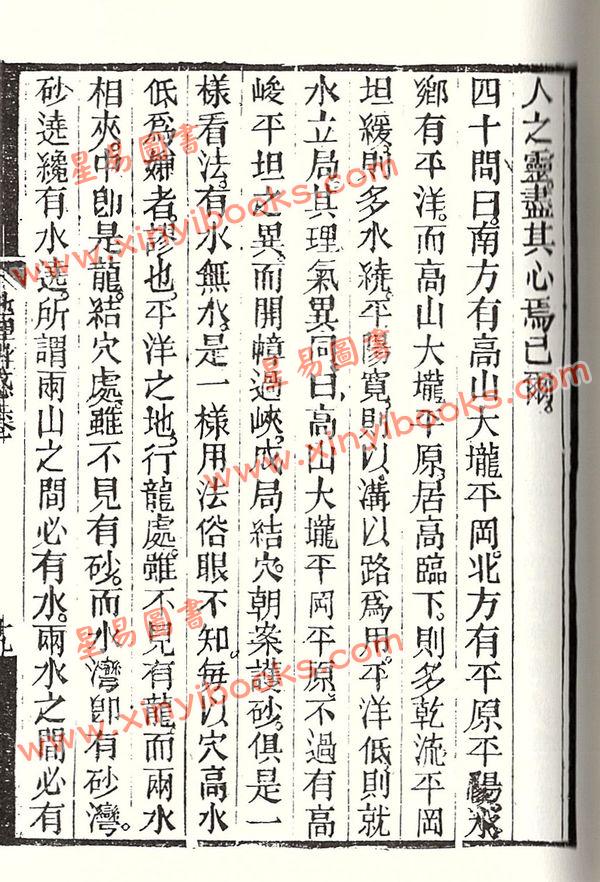 人之靈。盡其心焉已爾。
四十問曰。南方有高山大壠平岡。北方有平原平陽。水
鄉有平洋。而高山大壠。平原。居高臨下。則多乾流。平岡
坦緩。則多水繞。平陽寬。則以溝以路為用。平洋低。則就
水立局。其理氣異同。曰。高山大壠平岡平原。不過有高
峻平坦之異。而開幛過峽。成局結穴。朝案護砂。俱是一
樣看法。有水無水。是一樣用法。俗眼不知。每以穴高水
低為嫌者。謬也。平洋之地。行龍處。雖不見有龍。而兩水
相夾。中卽是龍。結穴處。雖不見有砂。而水灣卽有砂灣。
砂遶纔有水遶。所謂兩山之間必有水。兩水之間必有
十九
星易圖書
www.xinyibooks.com
星易圖書
www.xinyibooks.com
星易圖書
www.xinyibooks.com